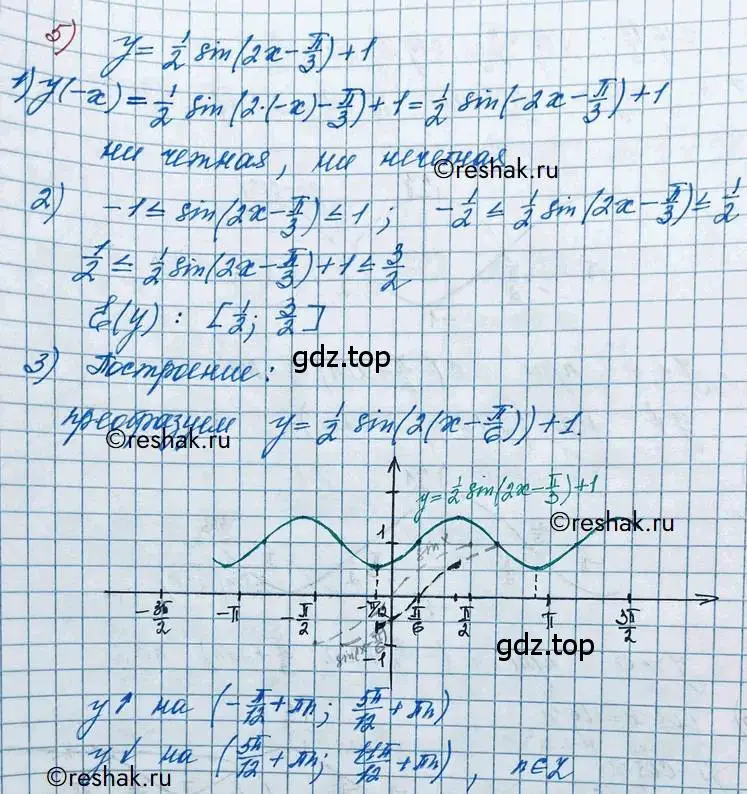 5) y = 1/2 sin(2x - π/3) + 1
1) y(-x) = 1/2 sin(2·(-x) - π/3) + 1 = 1/2 sin(-2x - π/3) + 1
ни четная, ни нечетная
©reshak.ru
2) -1 ≤ sin(2x - π/3) ≤ 1 ; -1/2 ≤ 1/2 sin(2x - π/3) ≤ 1/2
1/2 ≤ 1/2 sin(2x - π/3) + 1 ≤ 3/2
E(y) : [1/2; 3/2]
gdz.top
3) Построение:
преобразуем y = 1/2 sin(2(x - π/6)) + 1.
©reshak.ru
y = 1/2 sin(2x - π/3) + 1
©reshak.ru
1
sin x
-3π/2 -π -π/2 -π/12 π/6 π/2 π 3π/2
gdz.top
-1
y↑ на (-π/12 + πn; 5π/12 + πn)
y↓ на (5π/12 + πn; 11π/12 + πn), n∈Z
©reshak.ru
©reshak.ru